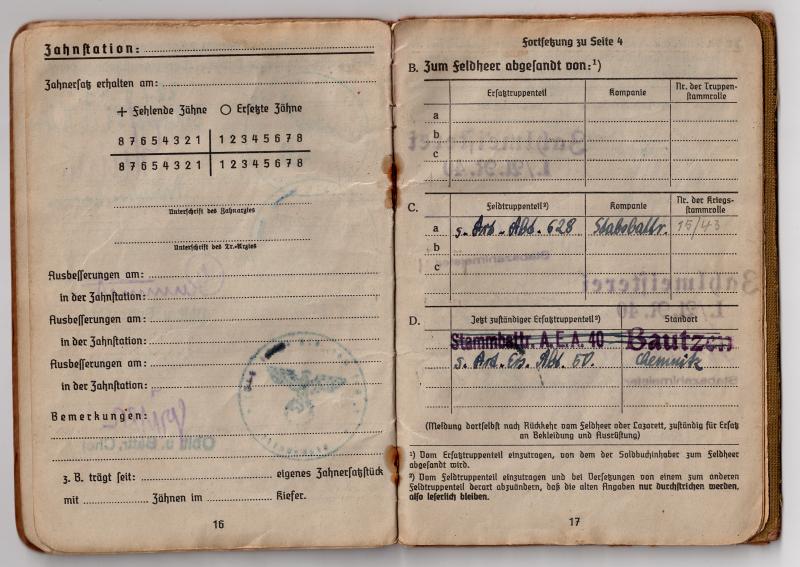 Zahnstation:
Zahnersatz erhalten am:
+ Fehlende Zähne O Ersetzte Zähne
8 7 6 5 4 3 2 1 | 1 2 3 4 5 6 7 8
8 7 6 5 4 3 2 1 | 1 2 3 4 5 6 7 8
Unterschrift des Zahnarztes
Unterschrift des Tr.-Arztes
Ausbesserungen am:
in der Zahnstation:
Ausbesserungen am:
in der Zahnstation:
Ausbesserungen am:
in der Zahnstation:
Bemerkungen:
z. B. trägt seit: eigenes Zahnersatzstück
mit Zähnen im Kiefer.
16
Fortsetzung zu Seite 4
B. Zum Feldheer abgesandt von:¹)
Ersatztruppenteil Kompanie Nr. der Truppen-
stammrolle
a
b
c
C. Feldtruppenteil²) Kompanie Nr. der Kriegs-
stammrolle
a s. Art.-Abt. 628 Stabsbattr. 15/43
b
c
D. Jetzt zuständiger Ersatztruppenteil²) Standort
Stammbattr. A.E.A. 40 Bautzen
s. Art. Ers. Abt. 50. Chemnitz
(Meldung dortselbst nach Rückkehr vom Feldheer oder Lazarett, zuständig für Ersatz
an Bekleidung und Ausrüstung)
¹) Vom Ersatztruppenteil einzutragen, von dem der Soldbuchinhaber zum Feldheer
abgesandt wird.
²) Vom Feldtruppenteil einzutragen und bei Versetzungen von einem zum anderen
Feldtruppenteil derart abzuändern, daß die alten Angaben nur durchstrichen werden,
also leserlich bleiben.
17